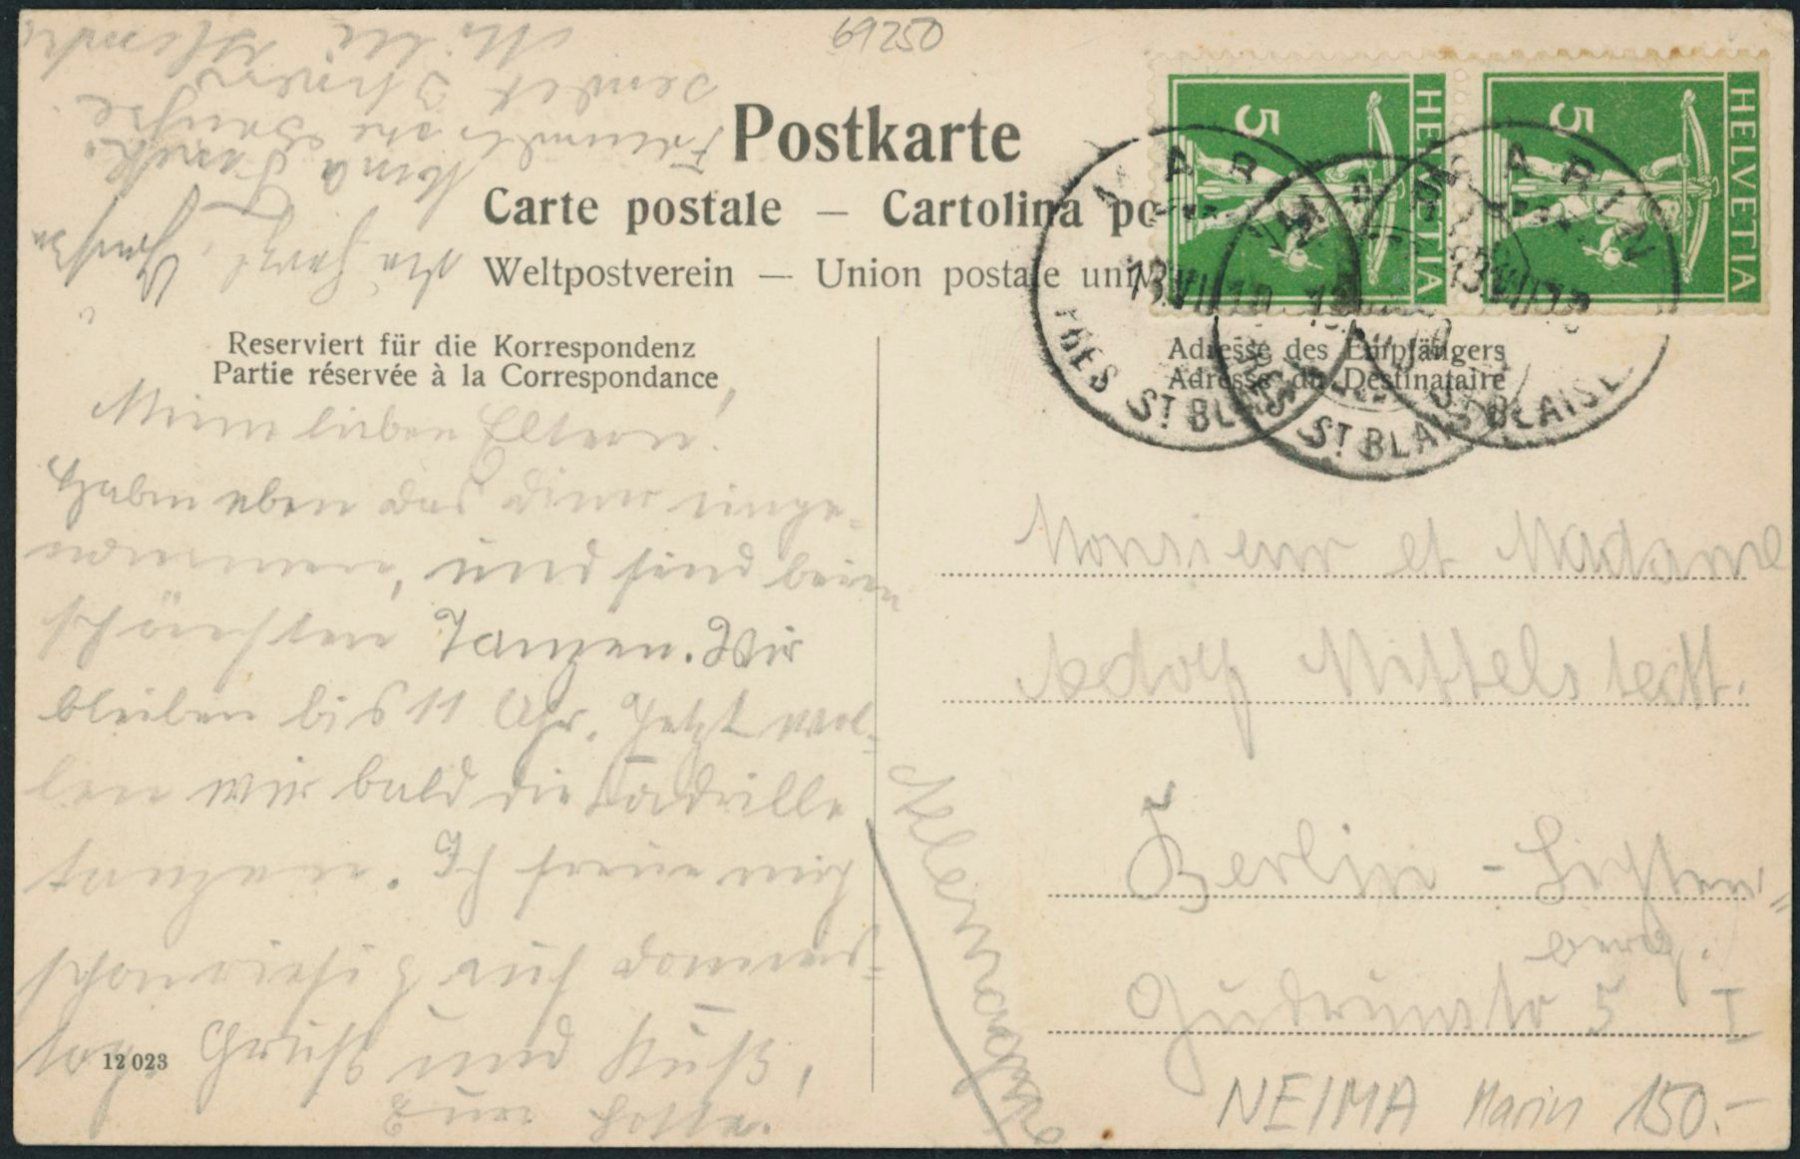 69250
Postkarte
Carte postale — Cartolina po
Weltpostverein — Union postale univ
HELVETIA
5
HELVETIA
5
MARIN
13.VII.12
PRÈS ST BLAISE
Reserviert für die Korrespondenz
Partie réservée à la Correspondance
Adresse des Empfängers
Adresse du Destinataire
Meine lieben Eltern!
Haben eben das diner einge-
nommen, und sind beim
schönsten Tanzen. Wir
bleiben bis 11 Uhr. Jetzt wol-
len wir bald die Quadrille
tanzen. Ich freue mich
schon riesig auf Donners-
tag. Gruß und Kuß,
Eure Lotte.
12 023
sendet Ihnen
Monsieur et Madame
Adolf Mittelstedt.
Berlin - Lichten-
berg.
Gudrunstr 5 I
Allemagne
NEIMA Marin 150.-